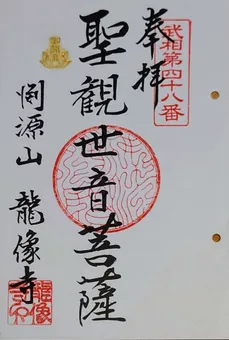 武相第四十八番
奉拝
聖観世音菩薩
淵源山 龍像寺